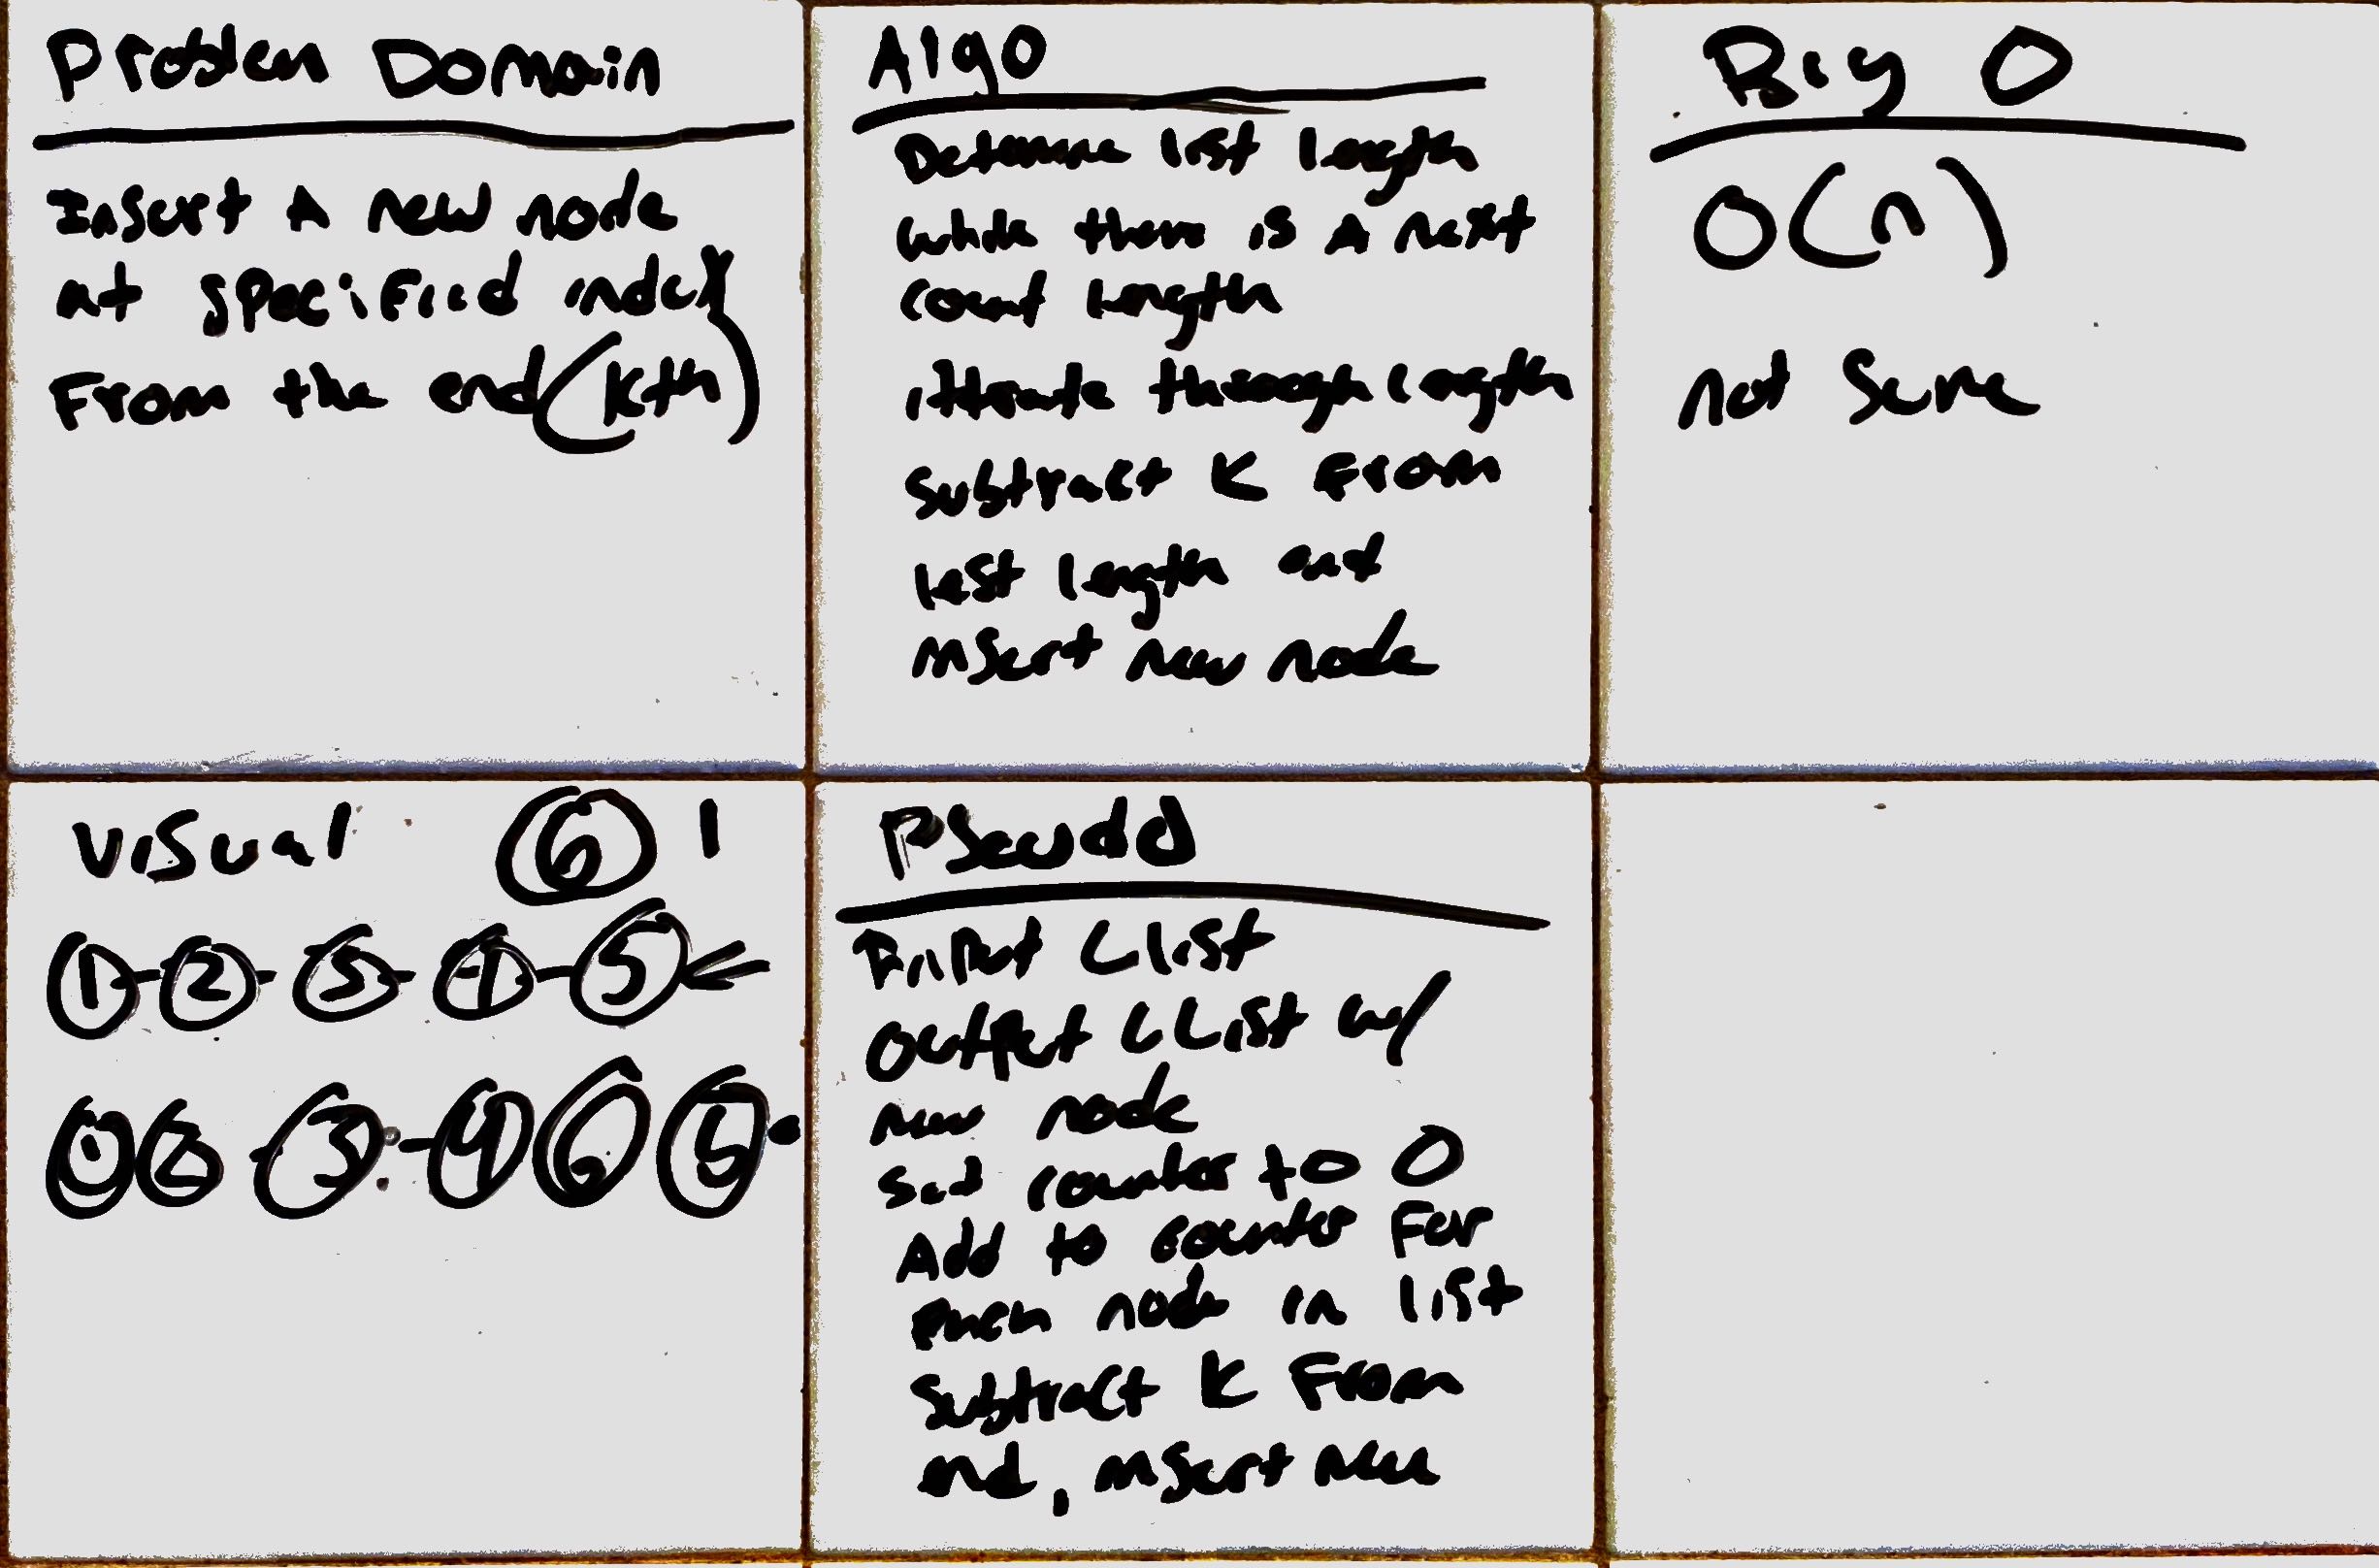 Problem Domain
Insert A new node
at specified index
From the end (kth)
Algo
Determine list length
while there is A next
count length
itterate through length
subtract K from
last length and
insert new node
Big O
O(n)
not sure
Visual 6 1
1 2 3 4 5
1 2 3 4 6 5
Pseudo
Input LList
output LList w/
new node
set counter to 0
Add to counter For
each node in list
subtract K From
end, insert new